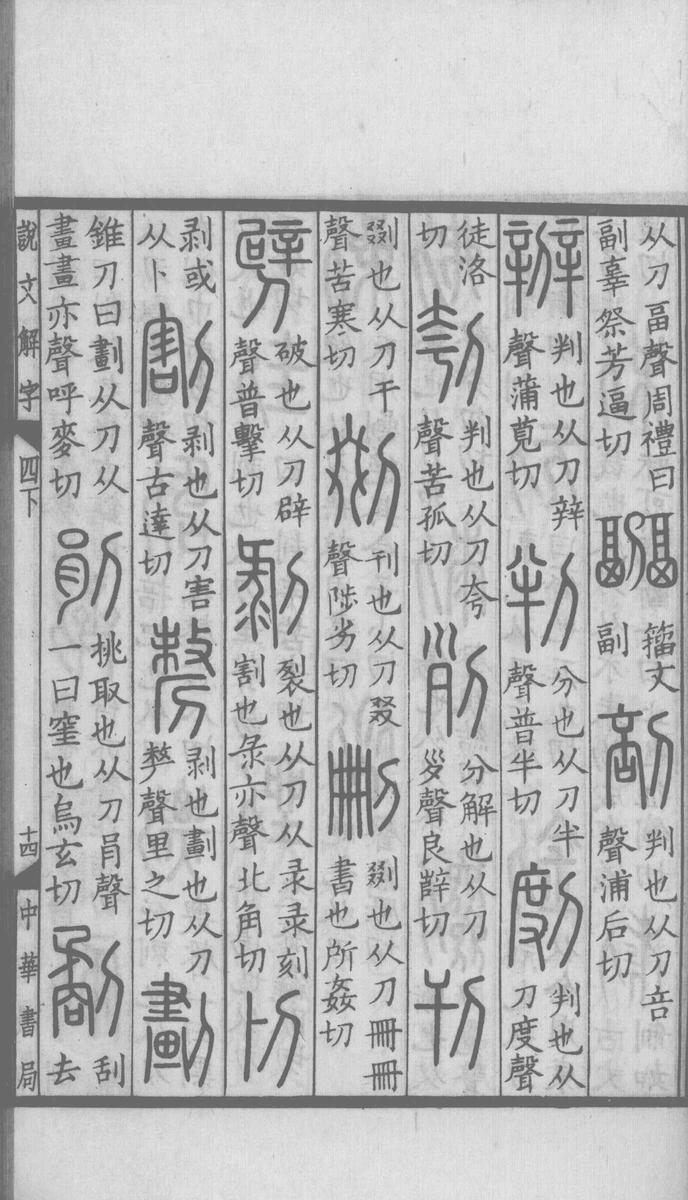 从刀畐聲周禮曰副辜祭芳逼切 疈 籒文副 剖 判也从刀咅聲浦后切
辧 判也从刀辡聲蒲莧切 判 分也从刀半聲普半切 剫 判也从刀度聲
徒洛切 刳 判也从刀夸聲苦孤切 列 分解也从刀𡿪聲良薛切 刊
剟也从刀干聲苦寒切 剟 刊也从刀叕聲陟劣切 刪 剟也从刀冊冊書也所姦切
劈 破也从刀辟聲普擊切 剝 裂也从刀从彔彔刻割也彔亦聲北角切 𠚾
剝或从卜 割 剝也从刀害聲古達切 剺 剝也劃也从刀𠩺聲里之切 劃
錐刀曰劃从刀从畫畫亦聲呼麥切 剈 挑取也从刀肙聲一曰窒也烏玄切 刮去
說文解字 四下 十四 中華書局